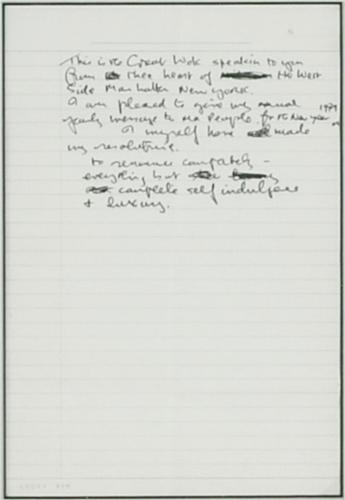 This is the Great Wok speakin to you
from thee heart of the West
Side Manhattan New York.
I am pleased to give my annual 1979
yearly message to the People. for the New year
I myself have made
my resolutions.
to renounce completely -
everything but
complete self indulgence
+ luxury.